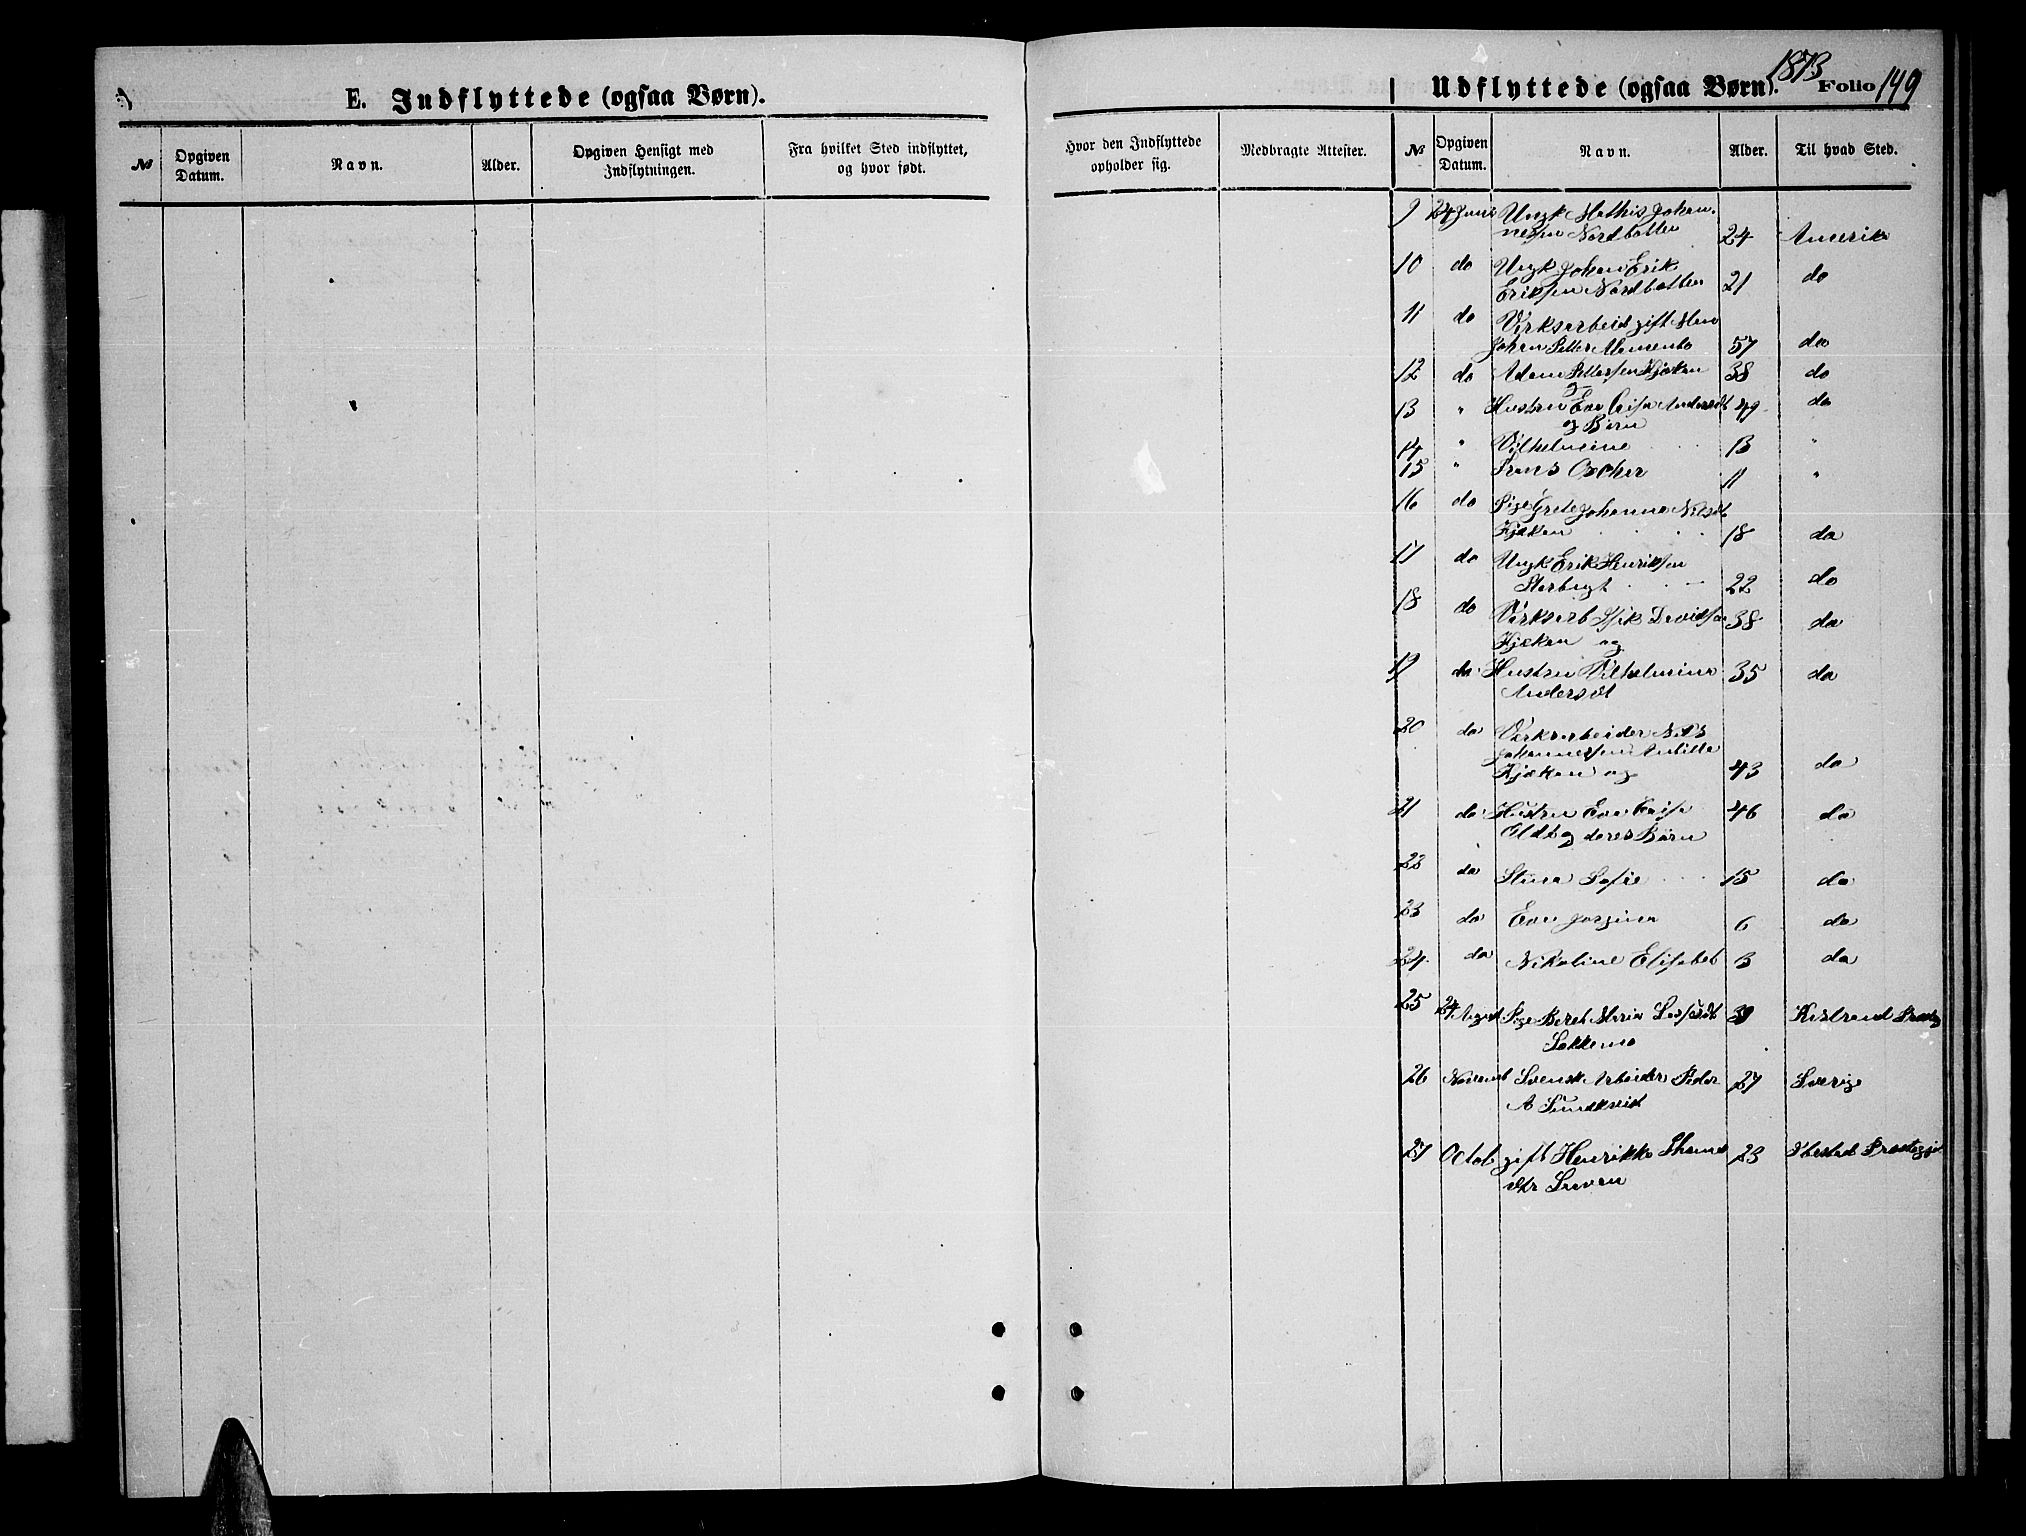 E. Indflyttede (ogsaa Børn).
№ Opgiven Datum. Navn. Alder. Opgiven Hensigt med Indflytningen. Fra hvilket Sted indflyttet, og hvor født.
Udflyttede (ogsaa Børn). 1873 Folio 149
Hvor den Indflyttede opholder sig. Medbragte Attester. № Opgiven Datum. Navn. Alder. Til hvad Sted.
9 24 Juni Ungk Mathis Johan-
nesen Nordbotten 24 Amerik
10 do Ungk Johan Erik
Eriksen Nordbotten 21 do
11 do Værksarbeid gift Man
Johan Petter 57 do
12 do Adam Pettersen Kjøken 38 do
og
13 " Hustru Eva Caisa Andersdt 49 do
og Børn
14 " Vilhelmine 13 "
15 " Frans Oscher 11 "
16 do Pige Grete Johanna Nilsdt
Kjøken 18 do
17 do Ungk Erik Henriksen
Storbugt 22 do
18 do Værksarb Isak Davidsen 38 do
Kjøken og
19 do Hustru Vilhelmina 35 do
Andersdt
20 do Værksarbeider Nils
Johannessen
Kjøken og 43 do
21 do Hustru Eva Caisa 46 do
Olsdt og deres Børn
22 do Stina Sofie 15 do
23 do Eva Jorgina 6 do
24 do Nikoline Elisabet 3 do
25 24 August Pige Beret Maria Larsdt 39 Kistrand Præstg
Sakkemo
26 Novemb Svensk Arbeider Peder 27 Sverige
A Sundkvist
27 Octob gift Henrikke Thoms 23 Ibestad Præstegje
dtr